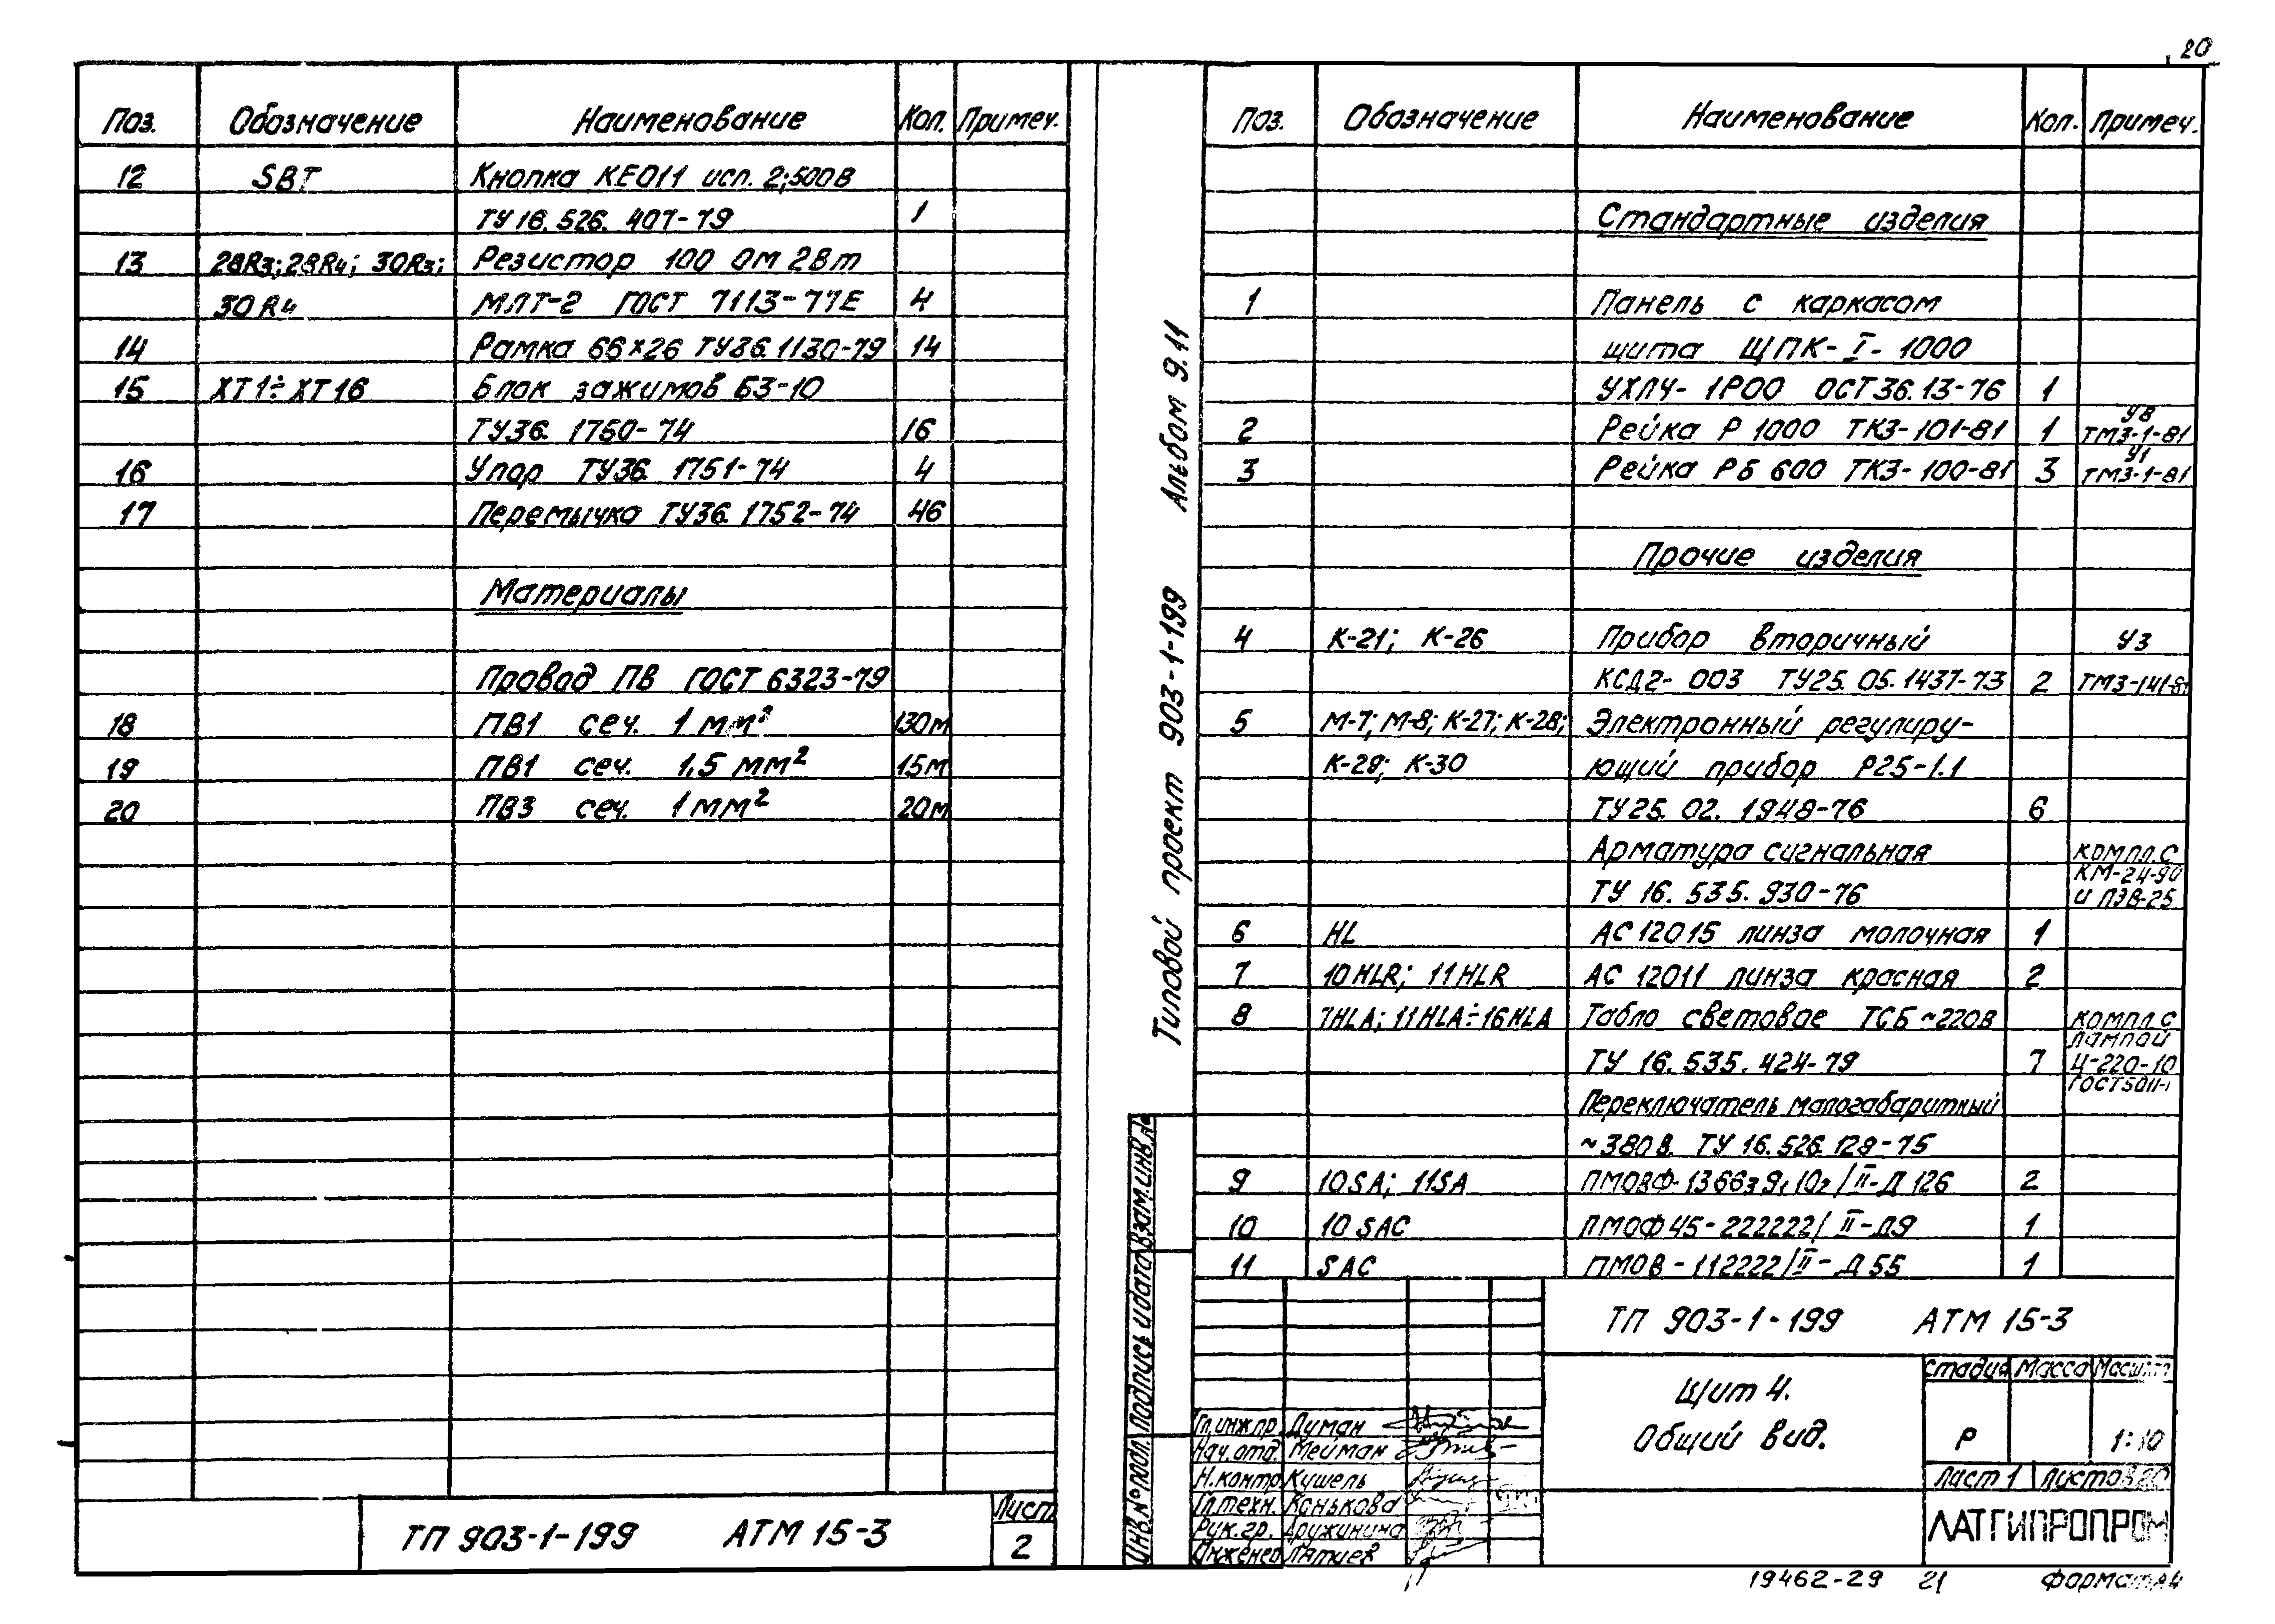 20
Поз. Обозначение Наименование Кол. Примеч.
12 SBT Кнопка КЕ011 исп. 2; 500В
ТУ 16. 526. 407-79 1
13 28R3; 28R4; 30R3; Резистор 100 Ом 2Вт
30R4 МЛТ-2 ГОСТ 7113-77Е 4
14 Рамка 66×26 ТУ36.1130-79 14
15 ХТ1÷ХТ16 Блок зажимов БЗ-10
ТУ36. 1750-74 16
16 Упор ТУ36. 1751-74 4
17 Перемычка ТУ36. 1752-74 46
Материалы
Провад ПВ ГОСТ 6323-79
18 ПВ1 сеч. 1 мм² 130м
19 ПВ1 сеч. 1,5 мм² 15м
20 ПВ3 сеч. 1 мм² 20м
ТП 903-1-199 АТМ 15-3
Лист
2
Типовой проект 903-1-199 Альбом 9.11
Инв.№подл. Подпись и дата Взам.инв.№
Поз. Обозначение Наименование Кол. Примеч.
Стандартные изделия
1 Панель с каркасом
щита ЩПК-I-1000
УХЛ4-1Р00 ОСТ36.13-76 1
2 Рейка Р 1000 ТКЗ-101-81 1 У8 ТМ3-1-81
3 Рейка РБ 600 ТКЗ-100-81 3 У1 ТМ3-1-81
Прочие изделия
4 К-21; К-26 Прибор вторичный У3
КСД2-003 ТУ25.05.1437-73 2 ТМ3-141-81
5 М-7; М-8; К-27; К-28; Электронный регулиру-
К-29; К-30 ющий прибор Р25-1.1
ТУ25. 02. 1948-76 6
Арматура сигнальная компл. с
ТУ 16. 535. 930-76 КМ-24-90 и ПЭВ-25
6 HL АС 12015 линза молочная 1
7 10HLR; 11HLR АС 12011 линза красная 2
8 7HLA; 11HLA÷16HLA Табло световое ТСБ ~220В компл. с лампой
ТУ 16. 535. 424-79 7 Ц-220-10 ГОСТ5011-
Переключатель малогабаритный
~380В. ТУ 16.526.128-75
9 10SA; 11SA ПМОВФ-1366з9,10₂/II-Д126 2
10 10SAC ПМОФ45-222222/II-Д9 1
11 SAC ПМОВ-112222/II-Д55 1
ТП 903-1-199 АТМ 15-3
Щит 4.
Общий вид.
Стадия Масса Масшт.
Р 1:10
Лист 1 Листов
ЛАТГИПРОПРОМ
Гл.инж.пр. Думан
Нач.отд. Мейман
Н.контр. Кушель
Гл.техн. Конькова
Рук.гр. Дружинина
Инженер
19462-29 21 Формат А4